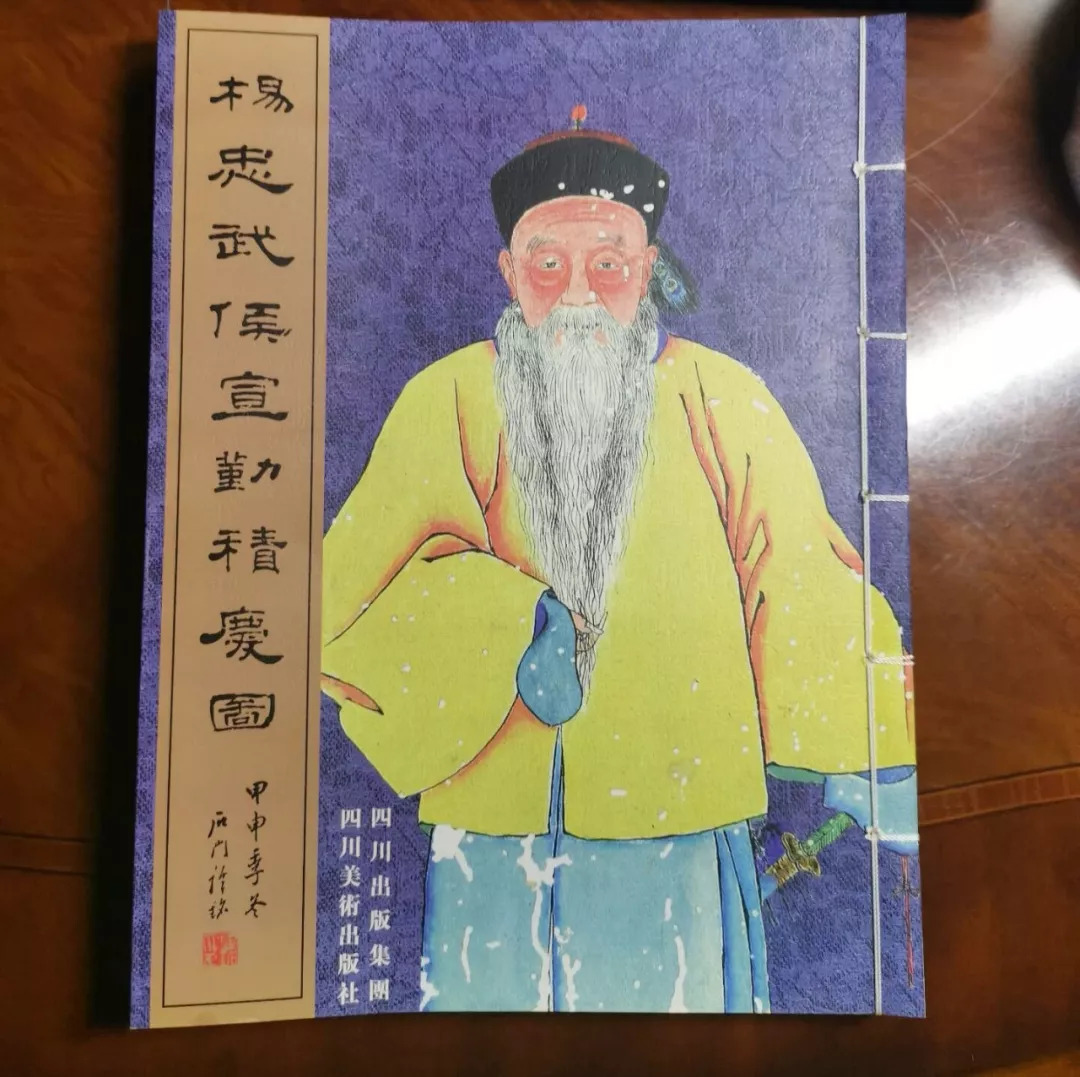 楊忠武侯宣勤積慶圖
甲申季冬
四川出版集團
四川美術出版社